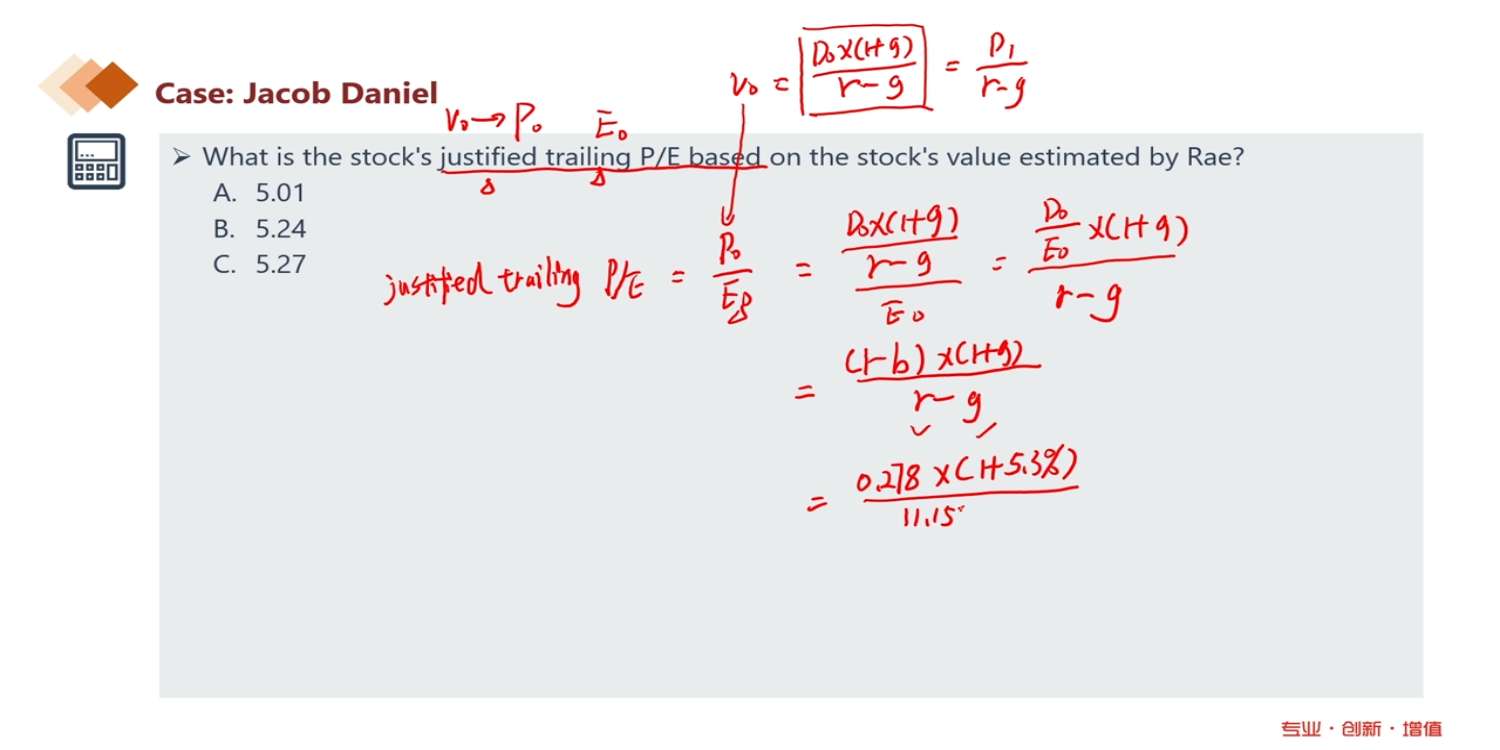 V₀ = D₀×(1+g) / r-g = D₁ / r-g
Case: Jacob Daniel
V₀ → P₀ E₀
➢ What is the stock's justified trailing P/E based on the stock's value estimated by Rae?
A. 5.01
B. 5.24
C. 5.27
justified trailing P/E = P₀ / E₀ = D₀×(1+g) / r-g / E₀ = D₀/E₀ ×(1+g) / r-g
= (1-b)×(1+g) / r-g
= 0.278×(1+5.3%) / 11.15
专业·创新·增值